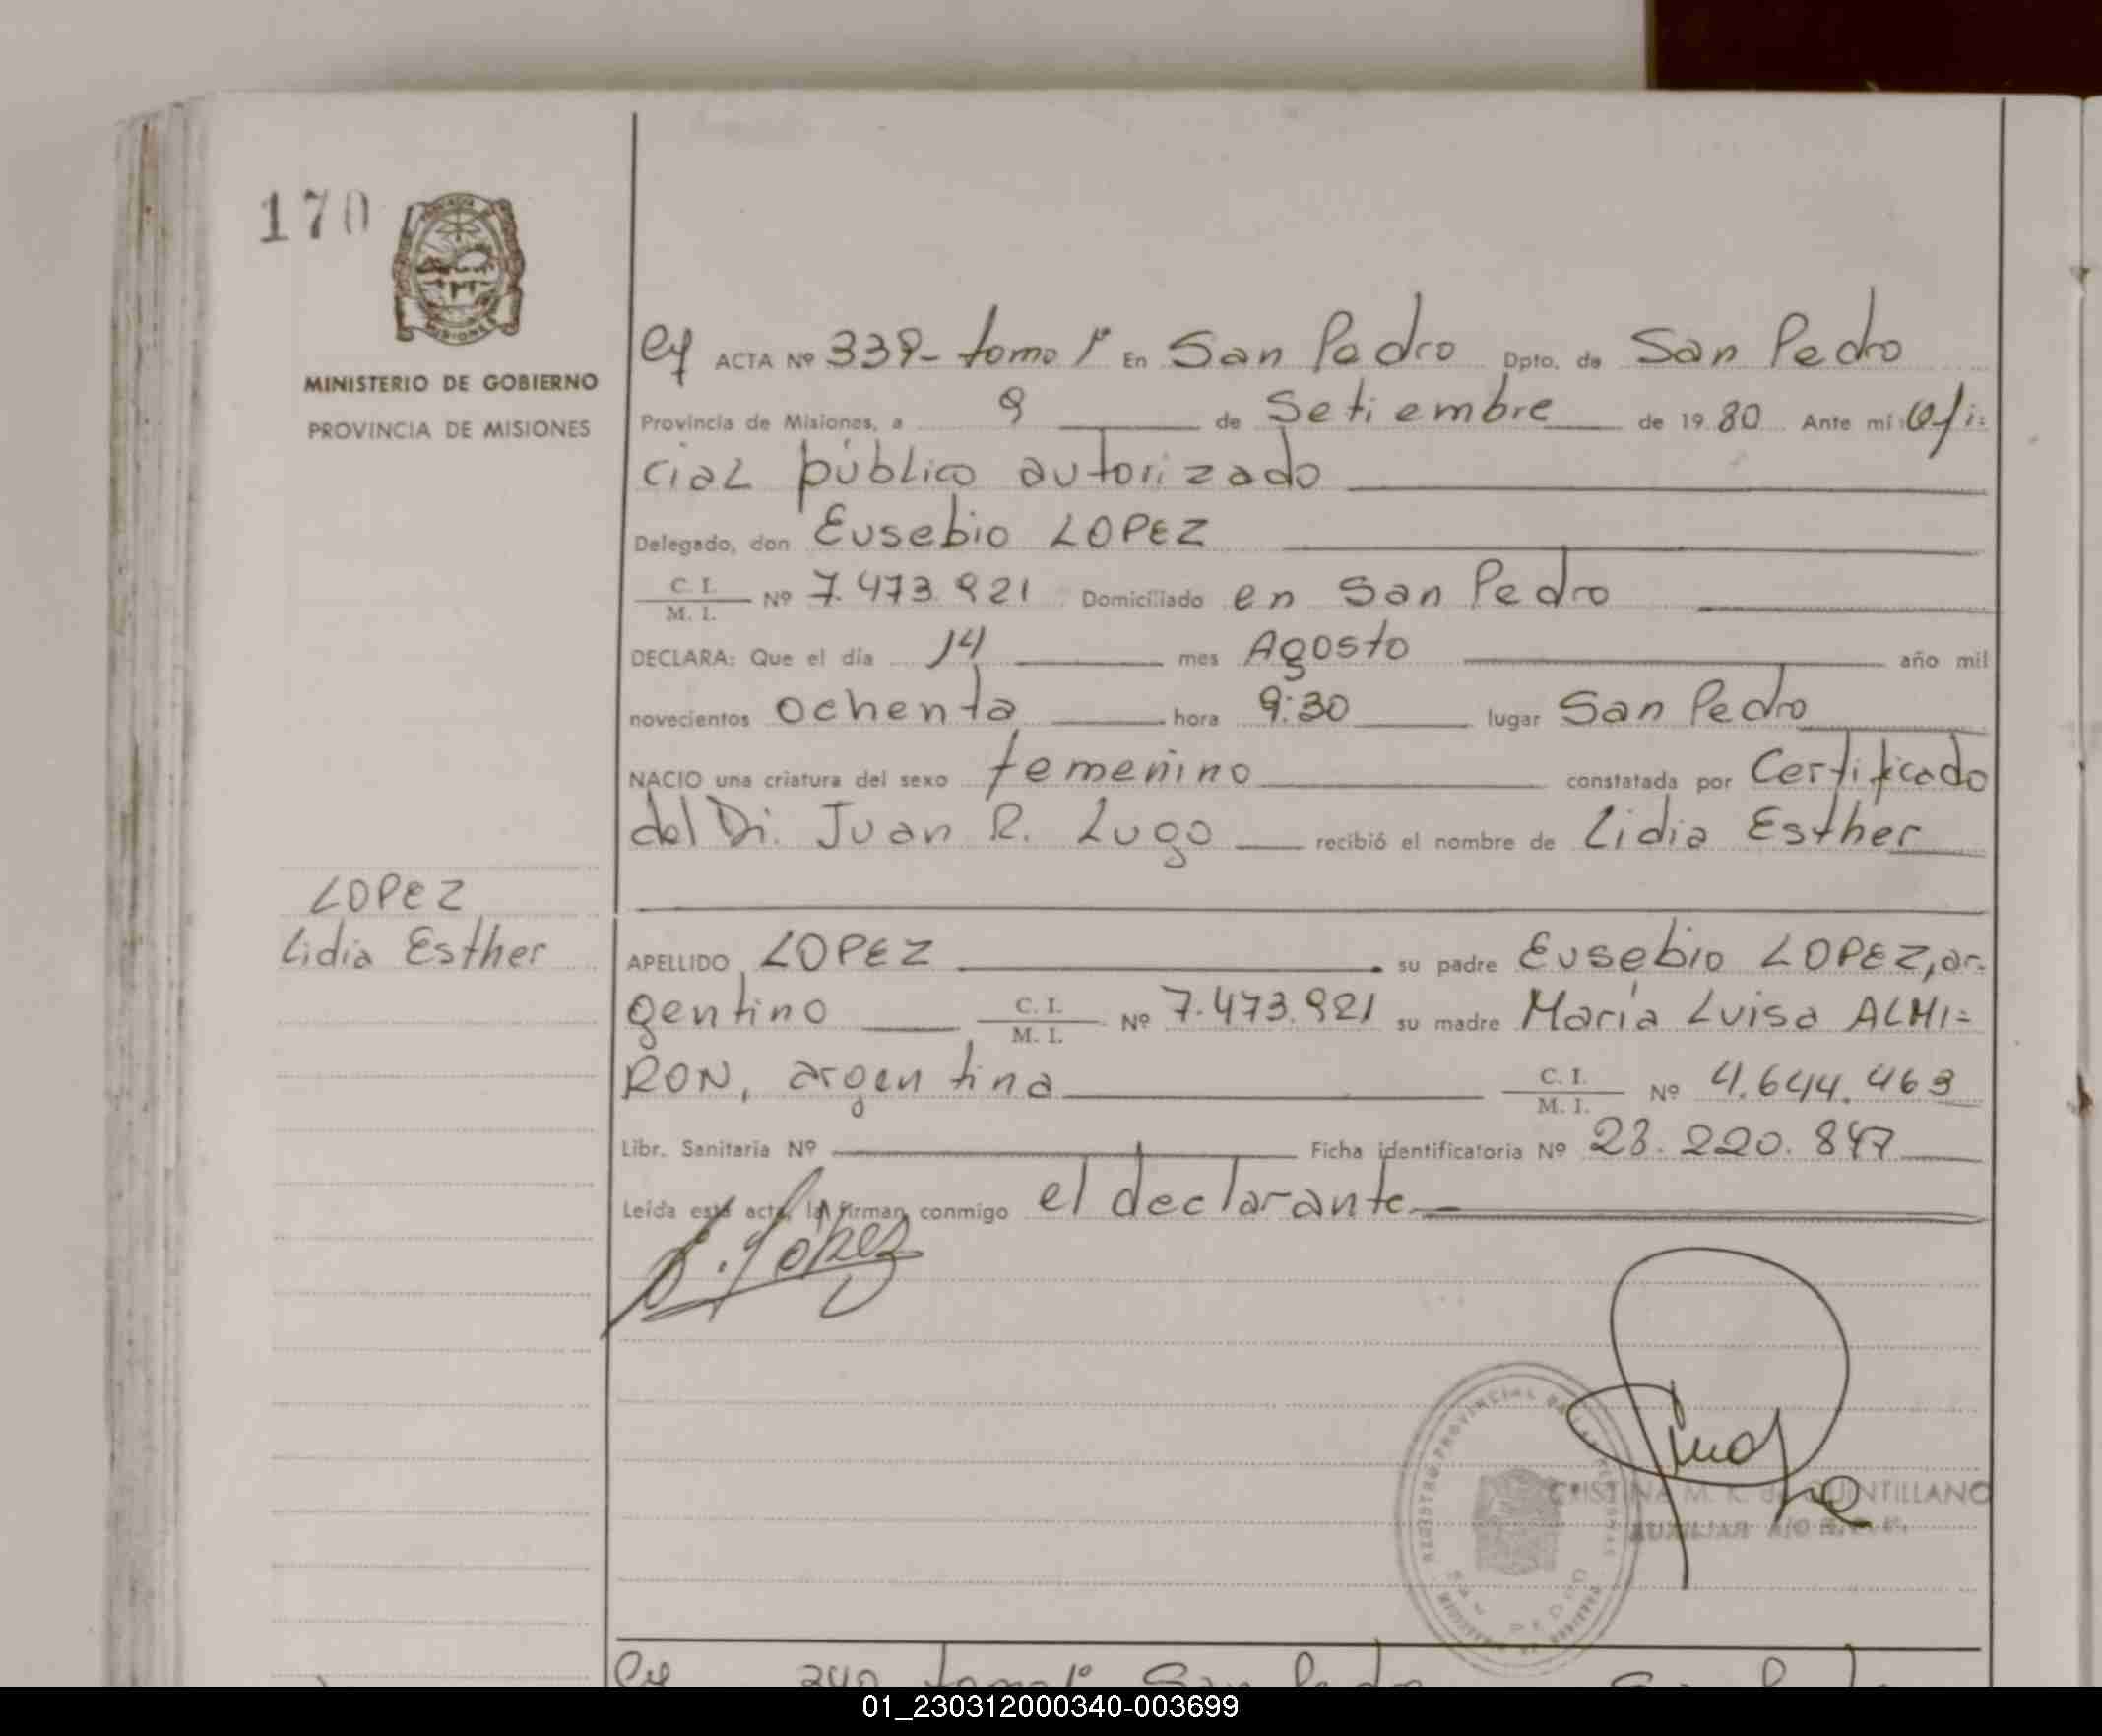 170
MINISTERIO DE GOBIERNO
PROVINCIA DE MISIONES
ACTA Nº 339- tomo 1º En San Pedro Dpto. de San Pedro
Provincia de Misiones, a 9 de Setiembre de 1980 Ante mí: Ofi=
cial público autorizado
Delegado, don Eusebio LOPEZ
C. I. / M. I. Nº 7.473.921 Domiciliado en San Pedro
DECLARA: Que el día 14 mes Agosto año mil
novecientos ochenta hora 9:30 lugar San Pedro
NACIO una criatura del sexo femenino constatada por Certificado
del Dr. Juan R. Lugo recibió el nombre de Lidia Esther
LOPEZ
Lidia Esther
APELLIDO LOPEZ su padre Eusebio LOPEZ, ar-
gentino C. I. / M. I. Nº 7.473.921 su madre María Luisa ALMI=
RON, argentina C. I. / M. I. Nº 4.644.463
Libr. Sanitaria Nº Ficha identificatoria Nº 28.220.847
Leída esta acta, la firman conmigo el declarante
E. López
REGISTRO PROVINCIAL DE LAS PERSONAS
SAN PEDRO
CRISTINA M. K. de QUINTILLANO
AUXILIAR A/O R.P.P.
340 tomo 1º San Pedro
01_230312000340-003699